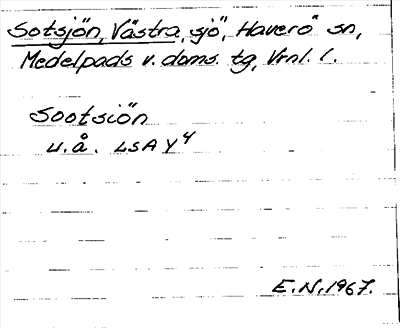 Sotsjön, Västra, sjö, Haverö sn,
Medelpads v. doms. tg, Vrnl. l.
Sootsiön
u.å. LSA Y4
E.N. 1967.